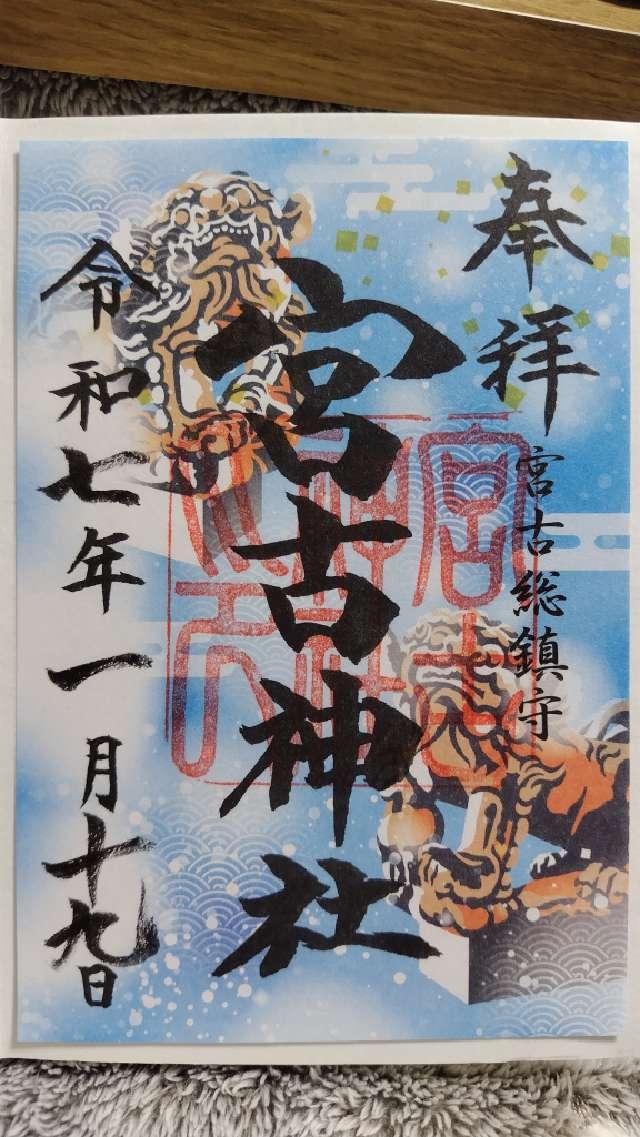 奉拝
宮古総鎮守
宮古神社
宮古
神社
之印
令和七年一月十九日